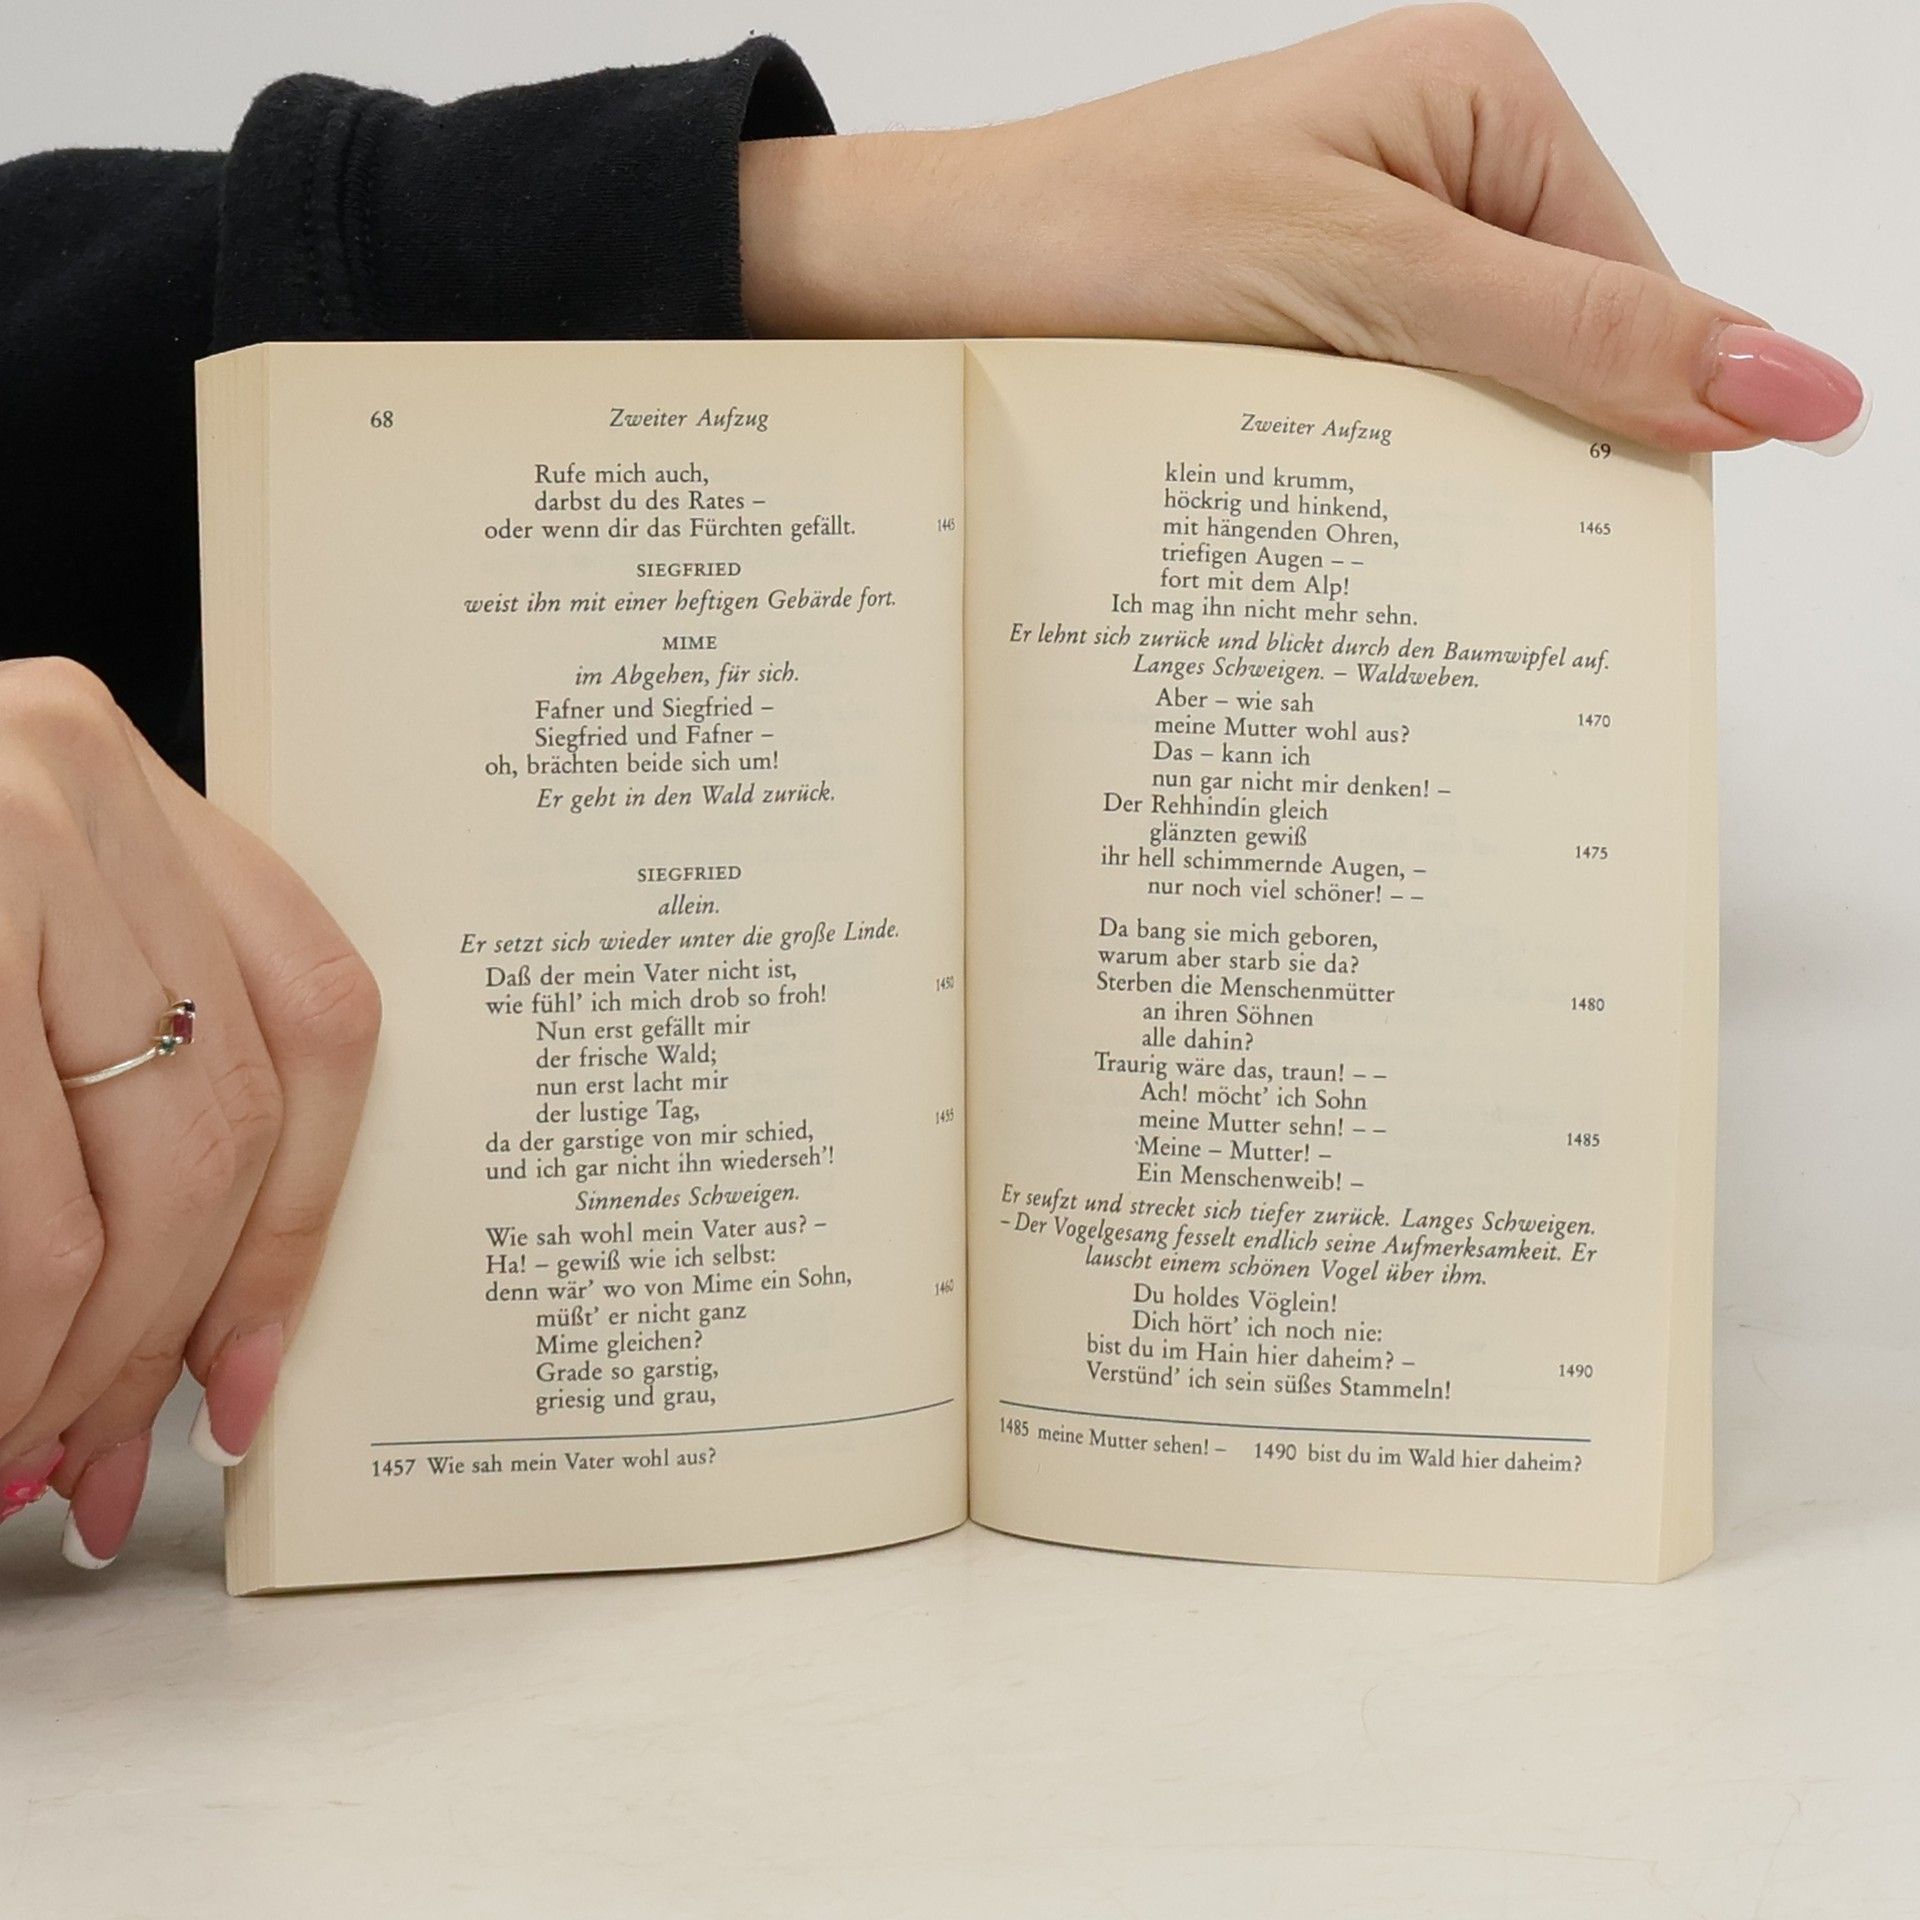 68
Zweiter Aufzug
Rufe mich auch,
darbst du des Rates –
oder wenn dir das Fürchten gefällt. 1445
SIEGFRIED
weist ihn mit einer heftigen Gebärde fort.
MIME
im Abgehen, für sich.
Fafner und Siegfried –
Siegfried und Fafner –
oh, brächten beide sich um!
Er geht in den Wald zurück.
SIEGFRIED
allein.
Er setzt sich wieder unter die große Linde.
Daß der mein Vater nicht ist,
wie fühl’ ich mich drob so froh! 1450
Nun erst gefällt mir
der frische Wald;
nun erst lacht mir
der lustige Tag, 1455
da der garstige von mir schied,
und ich gar nicht ihn wiederseh’!
Sinnendes Schweigen.
Wie sah wohl mein Vater aus? –
Ha! – gewiß wie ich selbst:
denn wär’ wo von Mime ein Sohn, 1460
müßt’ er nicht ganz
Mime gleichen?
Grade so garstig,
griesig und grau,
1457 Wie sah mein Vater wohl aus?
Zweiter Aufzug
69
klein und krumm,
höckrig und hinkend,
mit hängenden Ohren, 1465
triefigen Augen – –
fort mit dem Alp!
Ich mag ihn nicht mehr sehn.
Er lehnt sich zurück und blickt durch den Baumwipfel auf.
Langes Schweigen. – Waldweben.
Aber – wie sah
meine Mutter wohl aus? 1470
Das – kann ich
nun gar nicht mir denken! –
Der Rehhindin gleich
glänzten gewiß
ihr hell schimmernde Augen, – 1475
nur noch viel schöner! – –
Da bang sie mich geboren,
warum aber starb sie da?
Sterben die Menschenmütter
an ihren Söhnen 1480
alle dahin?
Traurig wäre das, traun! – –
Ach! möcht’ ich Sohn
meine Mutter sehn! – –
Meine – Mutter! – 1485
Ein Menschenweib! –
Er seufzt und streckt sich tiefer zurück. Langes Schweigen.
– Der Vogelgesang fesselt endlich seine Aufmerksamkeit. Er
lauscht einem schönen Vogel über ihm.
Du holdes Vöglein!
Dich hört’ ich noch nie:
bist du im Hain hier daheim? –
Verstünd’ ich sein süßes Stammeln! 1490
1485 meine Mutter sehen! – 1490 bist du im Wald hier daheim?